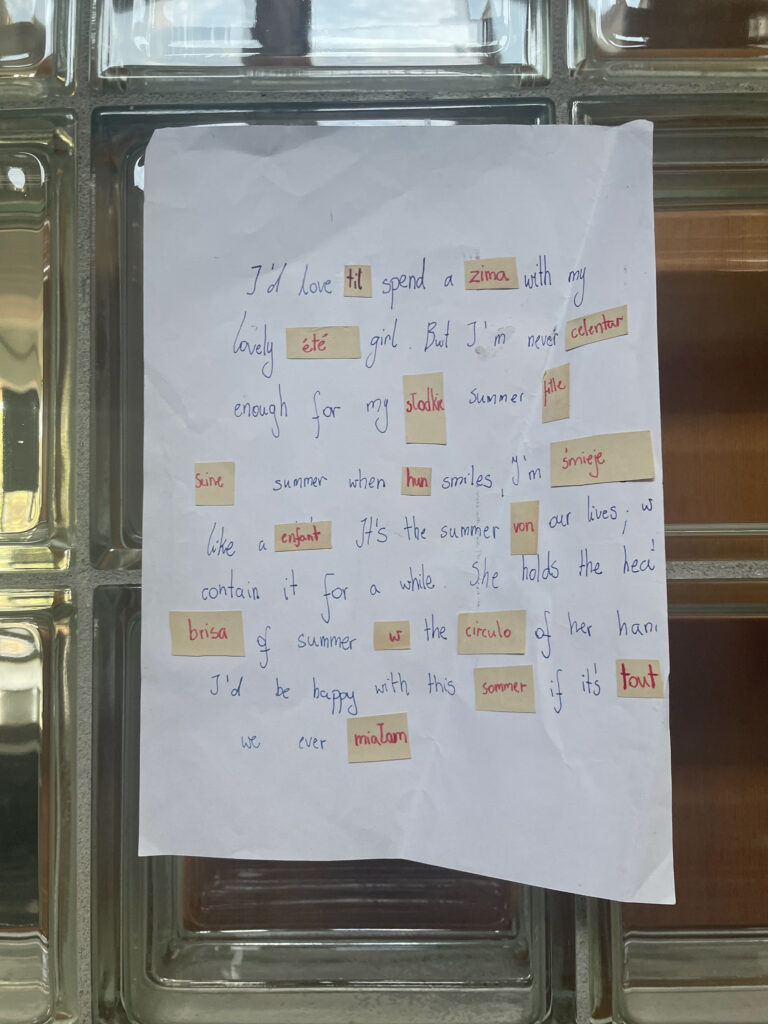 I'd love til spend a zima with my
lovely été girl. But I'm never celentar
enough for my słodkie summer fille
Suive summer when hun smiles, I'm śmieje
like a enfant It's the summer von our lives; w
contain it for a while. She holds the hea
brisa of summer w the circulo of her han
I'd be happy with this sommer if it's tout
we ever miałam